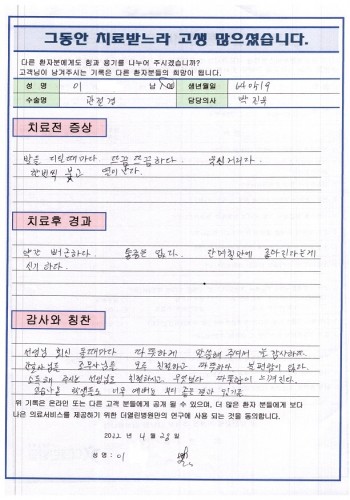 그동안 치료받느라 고생 많으셨습니다.
다른 환자분에게도 힘과 용기를 나누어 주시겠습니까?
고객님이 남겨주시는 기록은 다른 환자분들의 희망이 됩니다.
성 명 이 남 생년월일 640519
수술명 관절경 담당의사 박진욱
치료전 증상
발을 디딜때마다 뜨끔뜨끔하다. 욱신거리고
한번씩 붓고 열이난다.
치료후 경과
약간 뻐근하다. 통증은 없다. 단 며칠만에 좋아진다는게
신기하다.
감사와 칭찬
선생님 회진 올때마다 따뜻하게 말씀해 주셔서 또 감사하고
간호사님들 조무사님들 모두 친절하고 따뜻하다 불편함이 없다.
소독해 주시는 선생님도 친절하시고 무엇보다 따뜻함이 느껴진다.
위 기록은 온라인 또는 다른 고객 분들에게 공개 될 수 있으며, 더 많은 환자 분들에게 보다
나은 의료서비스를 제공하기 위한 더열린병원만의 연구에 사용 되는 것을 동의합니다.
2022 년 4 월 28 일
성 명 : 이